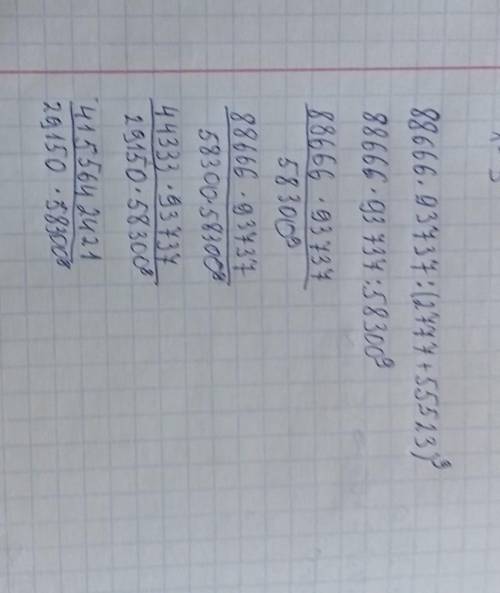 88666 · 93737 : (2777 + 55523)⁹
88666 · 93737 : 58300⁹
88666 · 93737
58300⁹
88666 · 93737
58300 · 58300⁸
44333 · 93737
29150 · 58300⁸
4155642421
29150 · 58300⁸